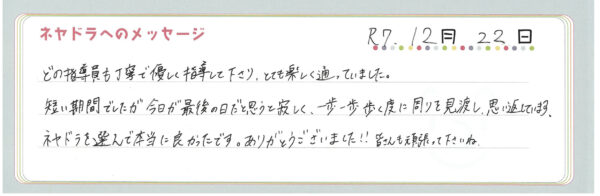 ネヤドラへのメッセージ
R7. 12月 22日
どの指導員も丁寧で優しく指導して下さり、とても楽しく通っていました。
短い期間でしたが今日が最後の日だと思うと寂しく、一歩一歩歩く度に周りを見渡し、思い返しています。
ネヤドラを選んで本当に良かったです。ありがとうございました!! 皆さんも頑張って下さいね